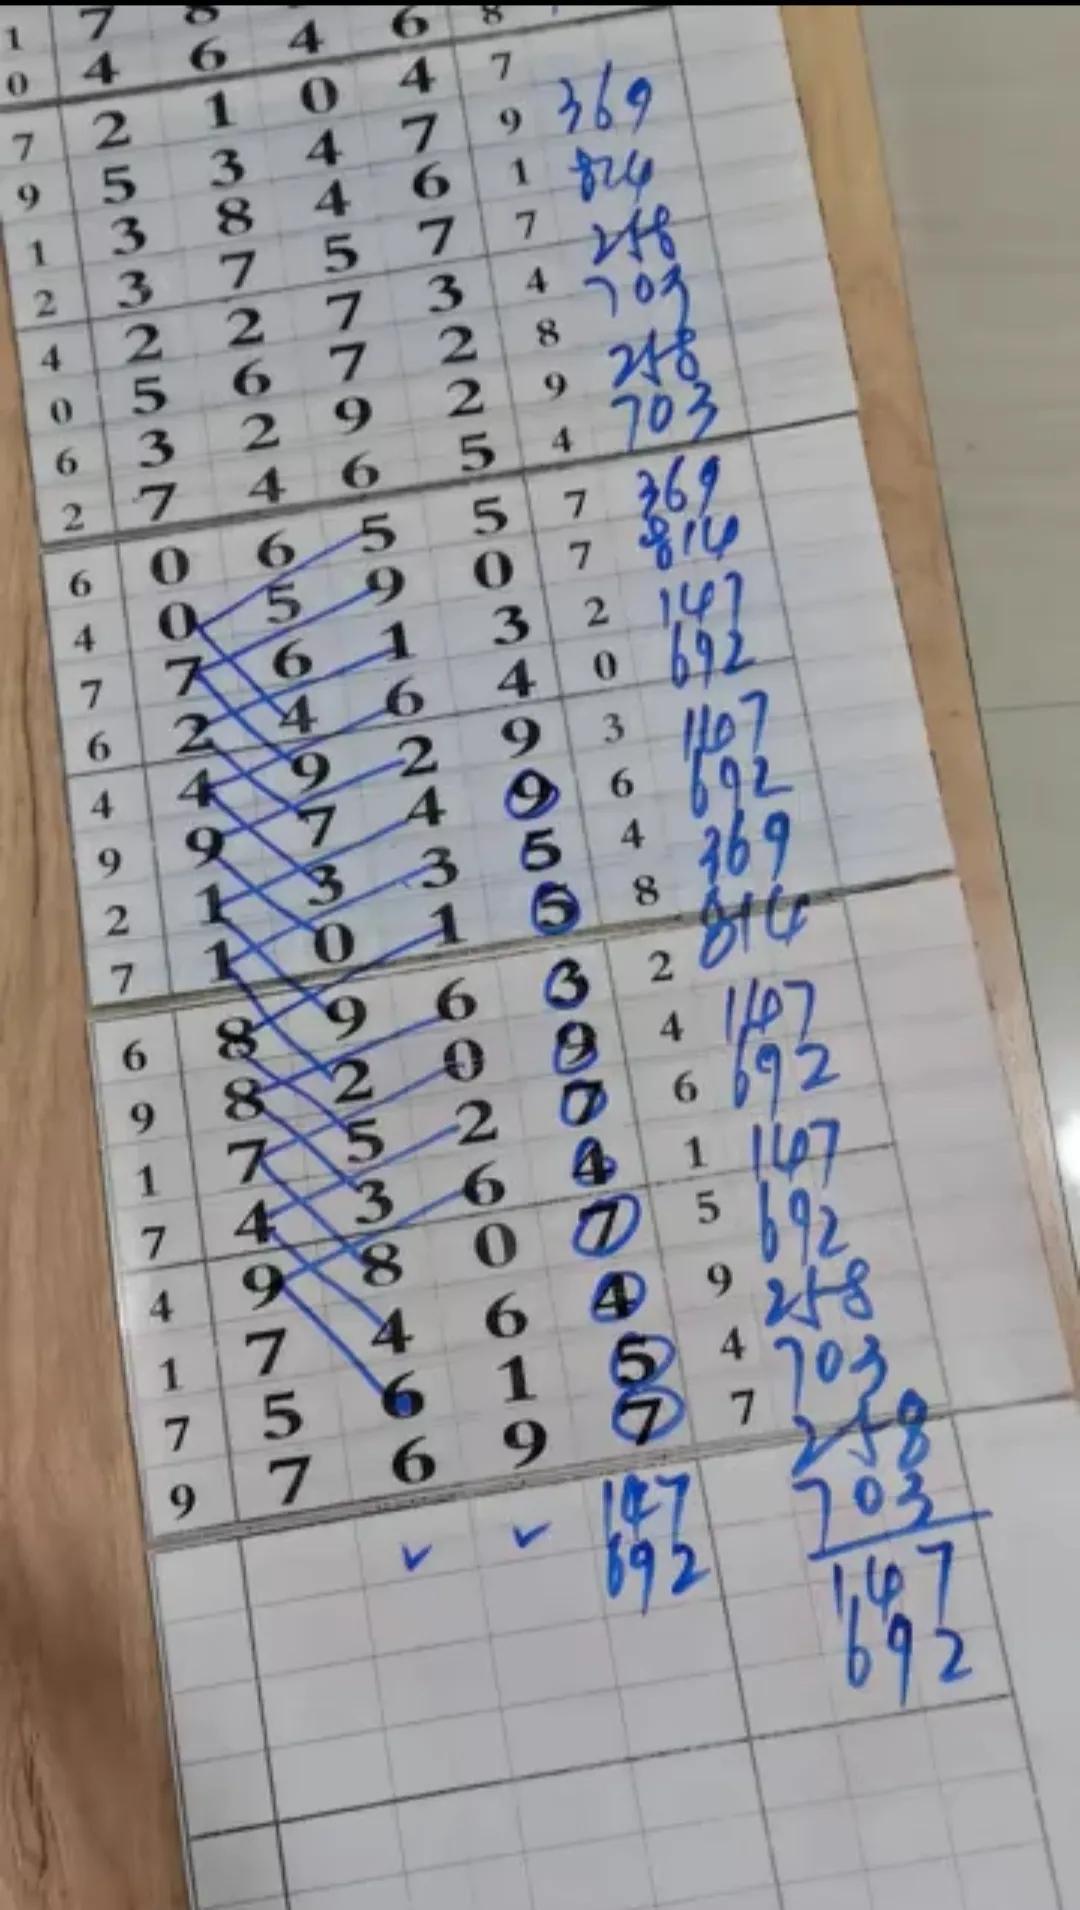 1 7 8
0 4 6 4 6 8
7 2 1 0 4 7
9 5 3 4 7 9 369
1 3 8 4 6 1 824
2 3 7 5 7 7 258
4 2 2 7 3 4 703
0 5 6 7 2 8 258
6 3 2 9 2 9 703
2 7 4 6 5 4
6 0 6 5 5 7 369
4 0 5 9 0 7 814
7 7 6 1 3 2 147
6 2 4 6 4 0 692
4 4 9 2 9 3 147
9 9 7 4 9 6 692
2 1 3 3 5 4 369
7 1 0 1 5 8 814
6 8 9 6 3 2
9 8 2 0 9 4 147
1 7 5 2 7 6 692
7 4 3 6 4 1 147
4 9 8 0 7 5 692
1 7 4 6 4 9 258
7 5 6 1 5 4 703
9 7 6 9 7 7 258
147 703
692 147
692